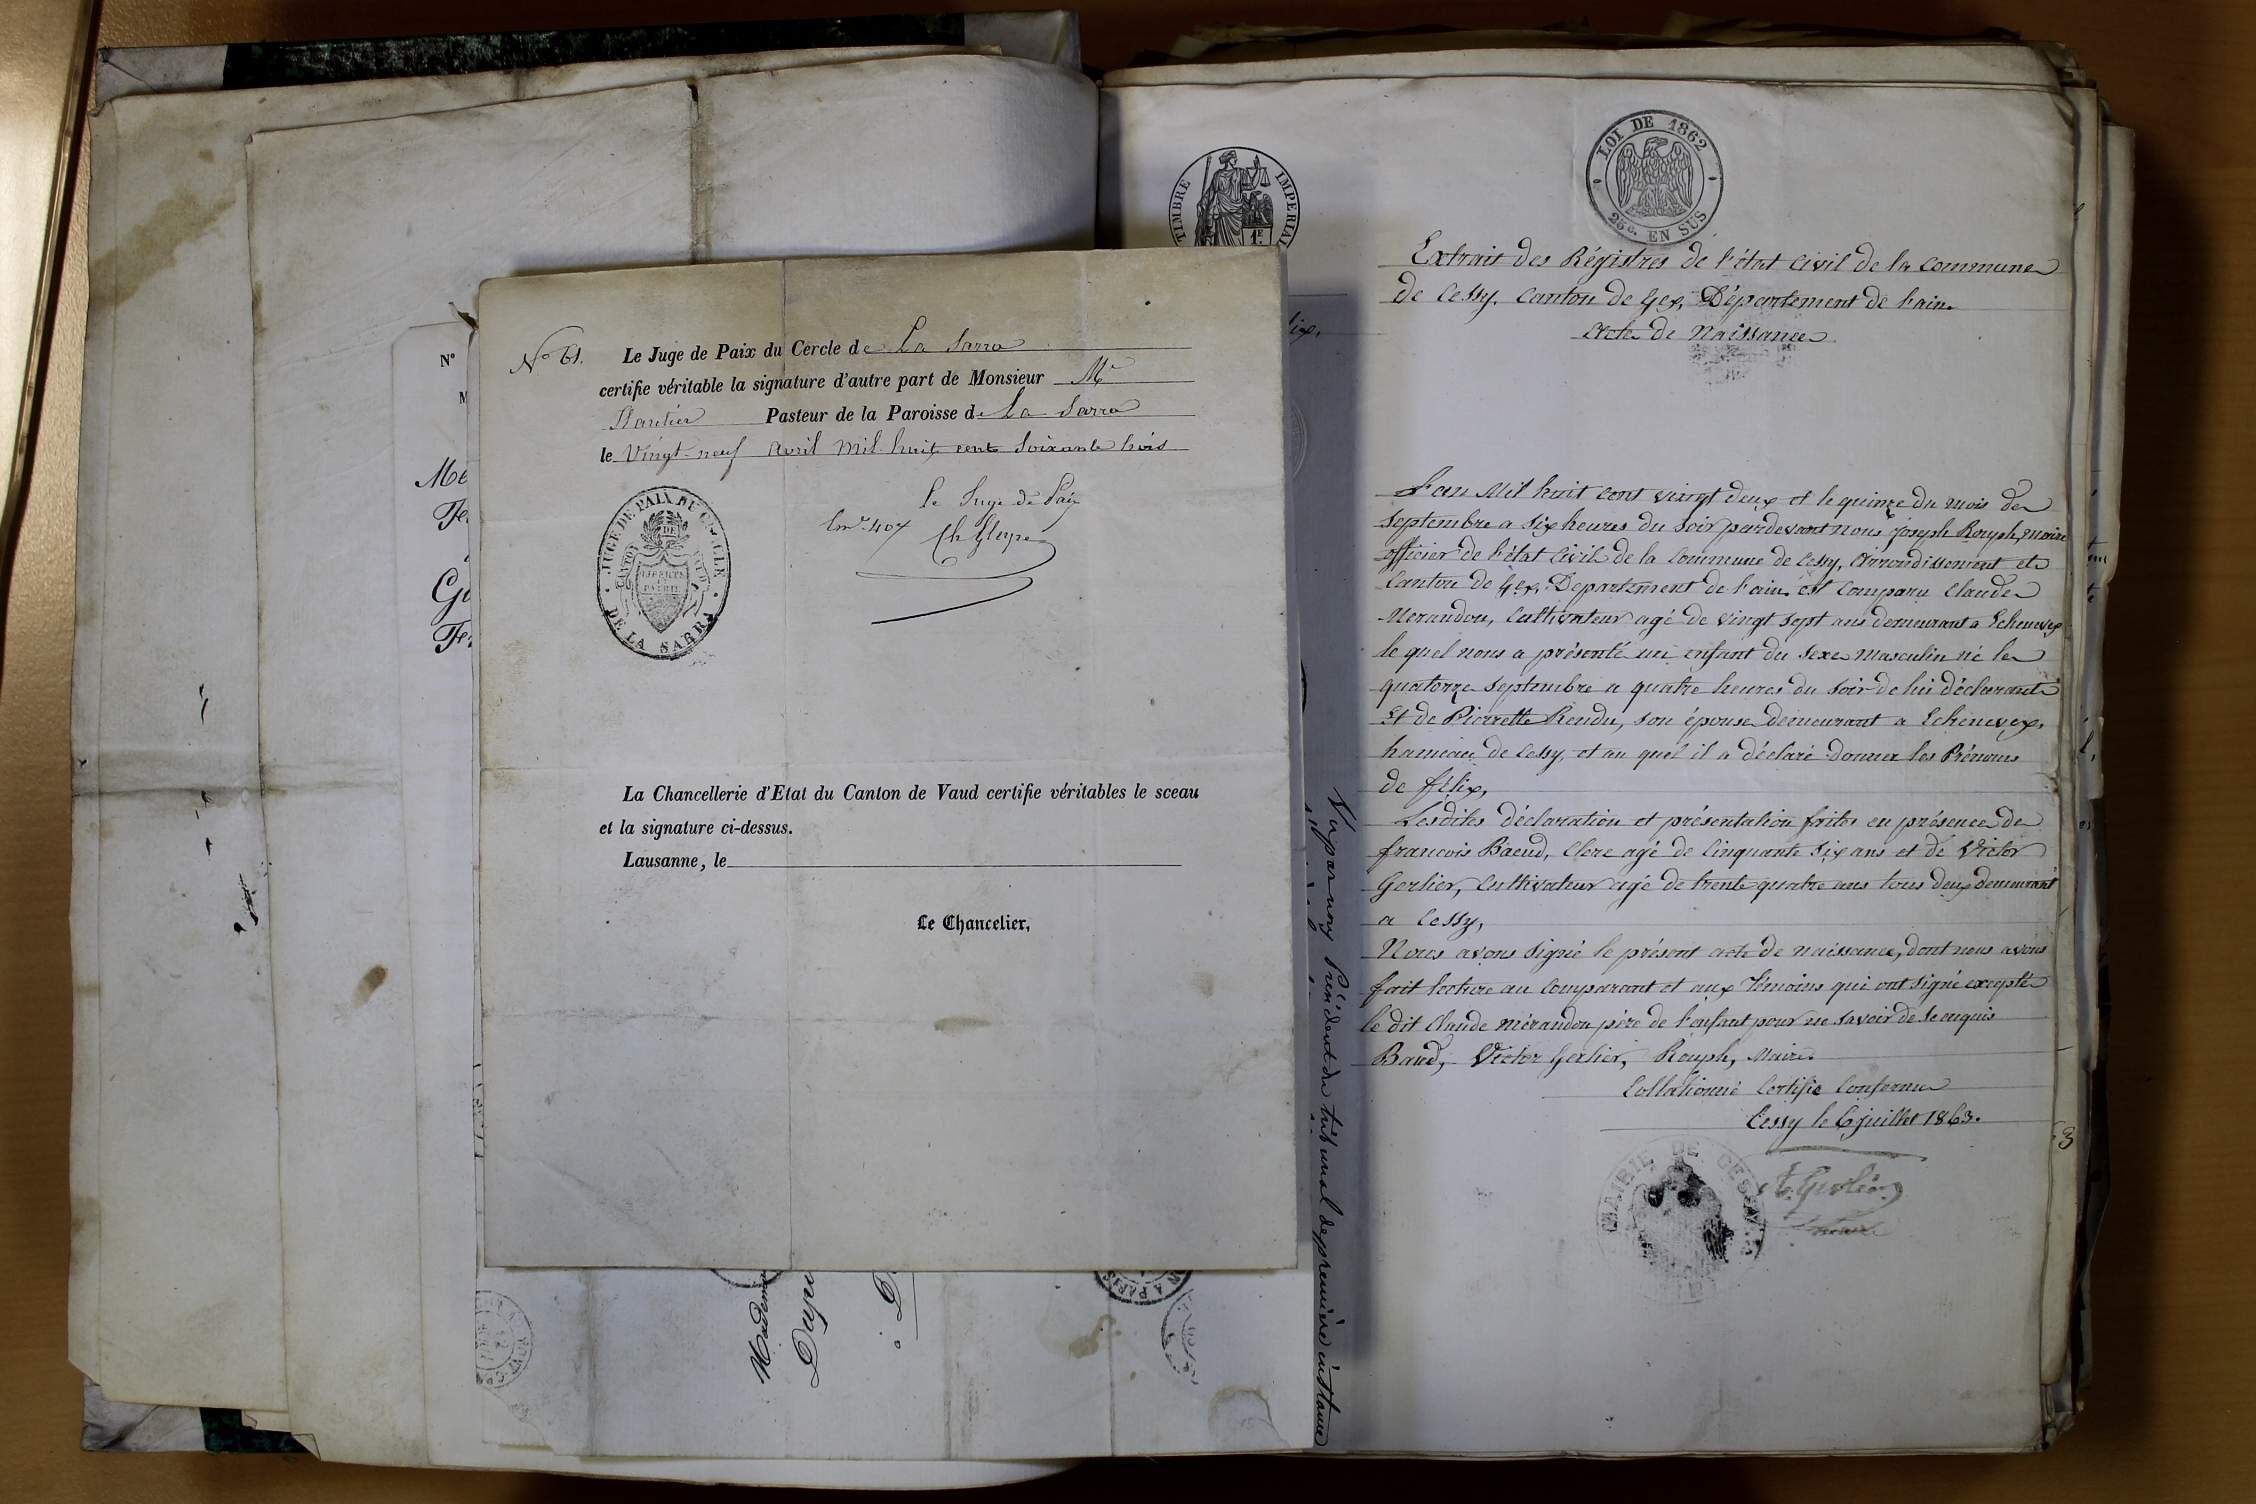 N°
M
Me
Fe
Gu
Fe
N° 61. Le Juge de Paix du Cercle de La Sarra
certifie véritable la signature d'autre part de Monsieur Mr
Pasteur de la Paroisse de La Sarra
le Vingt-neuf avril mil huit cent soixante trois
Le Juge de Paix
JUGE DE PAIX DU CERCLE
CANTON DE VAUD
LIBERTÉ ET PATRIE
DE LA SARRA
La Chancellerie d'Etat du Canton de Vaud certifie véritables le sceau
et la signature ci-dessus.
Lausanne, le
Le Chancelier,
TIMBRE IMPERIAL
1F
Vu par nous Président du tribunal de première instance
LOI DE 1862
25c. EN SUS
Extrait des Régistres de l'état civil de la commune
de Cessy, Canton de Gex, Département de l'ain.
Acte de Naissance
L'an Mil huit cent vingt deux et le quinze du mois de
Septembre a six heures du soir pardevant nous joseph Rouph, maire
officier de l'état civil de la commune de Cessy, Arrondissement et
Canton de Gex, Departement de l'ain est comparu Claude
Merandon, Cultivateur agé de vingt sept ans demeurant a Echenevex
le quel nous a présenté un enfant du sexe masculin né le
quatorze septembre a quatre heures du soir de lui déclarant
Et de Pierrette Rendu, son épouse demeurant a Echenevex,
hameau de Cessy, et au quel il a déclaré donner les Prénoms
de félix,
Lesdites déclaration et présentation faites en présence de
francois Baeud, Clerc agé de Cinquante six ans et de Victor
Gerlier, Cultivateur agé de trente quatre ans tous deux demeurant
a Cessy,
Nous avons signé le présent acte de naissance, dont nous avons
fait lecture au comparant et aux témoins qui ont signé excepté
le dit Claude mérandon père de l'enfant pour ne savoir de ce enquis
Baud, Victor Gerlier, Rouph, Maire
Collationné Certifié Conforme
Cessy le 6 juillet 1863.
MAIRIE DE CESSY